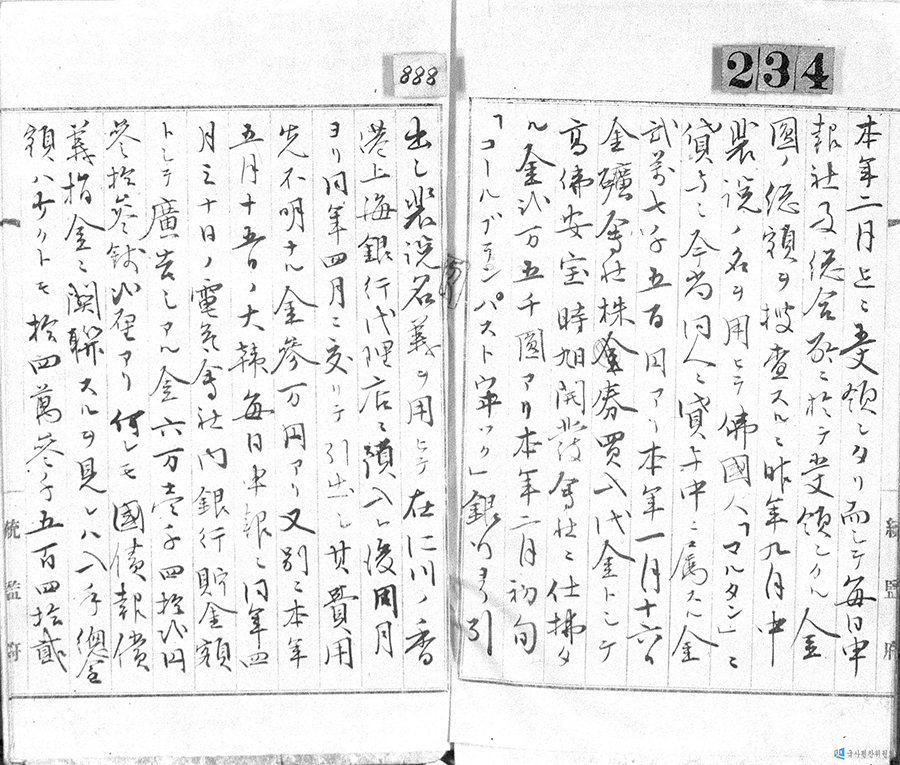 234
本年二月迄ニ受領シタリ而シテ毎日申
報社及総合所ニ於テ受領シタル金
圓ノ総額ヲ捜査スルニ昨年九月中
裴説ノ名ヲ用ヒテ佛國人「マルタン」ニ
貸与シ今尚同人ニ貸与中ニ属スル金
弐萬七千五百円アリ本年一月十六日
金礦會社株金券買入代金トシテ
高佛安宝時旭開發會社ニ仕拂タ
ル金弐万五千圓アリ本年二月初旬
「コールブランバストウヰック」銀行ヨリ引
888
出シ裴説名義ヲ用ヒテ在仁川ノ香
港上海銀行代理店ニ預入シ後同月
ヨリ同年四月ニ亥リテ引出シ其費用
先不明ナル金参万円アリ又別ニ本年
五月十五日ノ大韓毎日申報ニ同年四
月三十日ノ電気會社内銀行貯金額
トシテ廣告シアル金六万壱千四拾弐円
参拾参銭弐厘アリ何レモ國債報償
義捐金ニ関聯スルヲ見レハ入手總金
額ハ少クトモ拾四萬参千五百四拾貳
統監府
統監府
국사편찬위원회